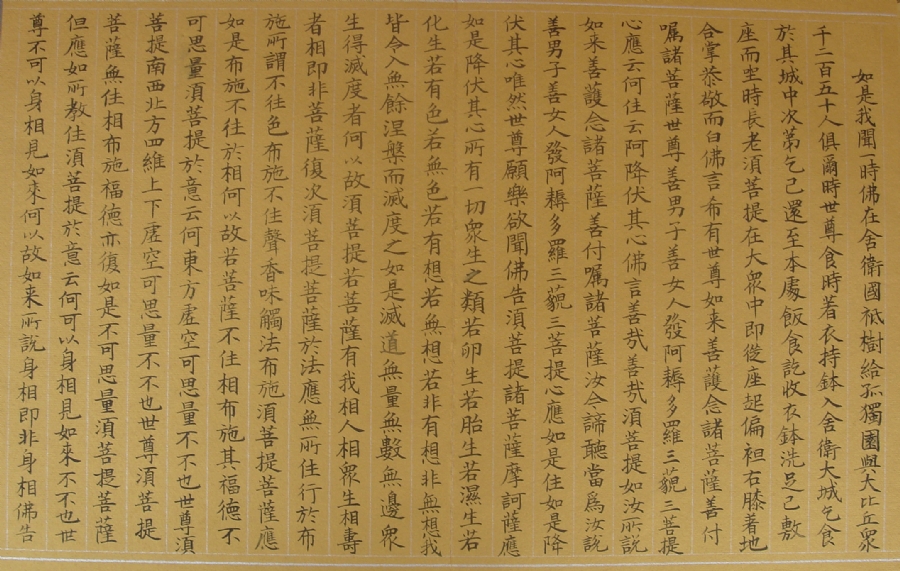 如是我聞一時佛在舍衛國祇樹給孤獨園與大比丘眾
千二百五十人俱爾時世尊食時著衣持鉢入舍衛大城乞食
於其城中次第乞已還至本處飯食訖收衣鉢洗足已敷
座而坐時長老須菩提在大眾中即從座起偏袒右膝著地
合掌恭敬而白佛言希有世尊如来善護念諸菩薩善付
嘱諸菩薩世尊善男子善女人發阿耨多羅三藐三菩提
心應云何住云阿降伏其心佛言善哉善哉須菩提如汝所説
如来善護念諸菩薩善付嘱諸菩薩汝今諦聽當爲汝説
善男子善女人發阿耨多羅三藐三菩提心應如是住如是降
伏其心唯然世尊願樂欲聞佛告須菩提諸菩薩摩訶薩應
如是降伏其心所有一切眾生之類若卵生若胎生若濕生若
化生若有色若無色若有想若無想若非有想非無想我
皆令入無餘涅槃而滅度之如是滅道無量無數無邊眾
生得滅度者何以故須菩提若菩薩有我相人相眾生相壽
者相即非菩薩復次須菩提菩薩於法應無所住行於布
施所謂不住色布施不住聲香味觸法布施須菩提菩薩應
如是布施不住於相何以故若菩薩不住相布施其福德不
可思量須菩提於意云何東方虛空可思量不不也世尊須
菩提南西北方四維上下虛空可思量不不也世尊須菩提
菩薩無住相布施福德亦復如是不可思量須菩提菩薩
但應如所教住須菩提於意云何可以身相見如来不不也世
尊不可以身相見如来何以故如来所說身相即非身相佛告